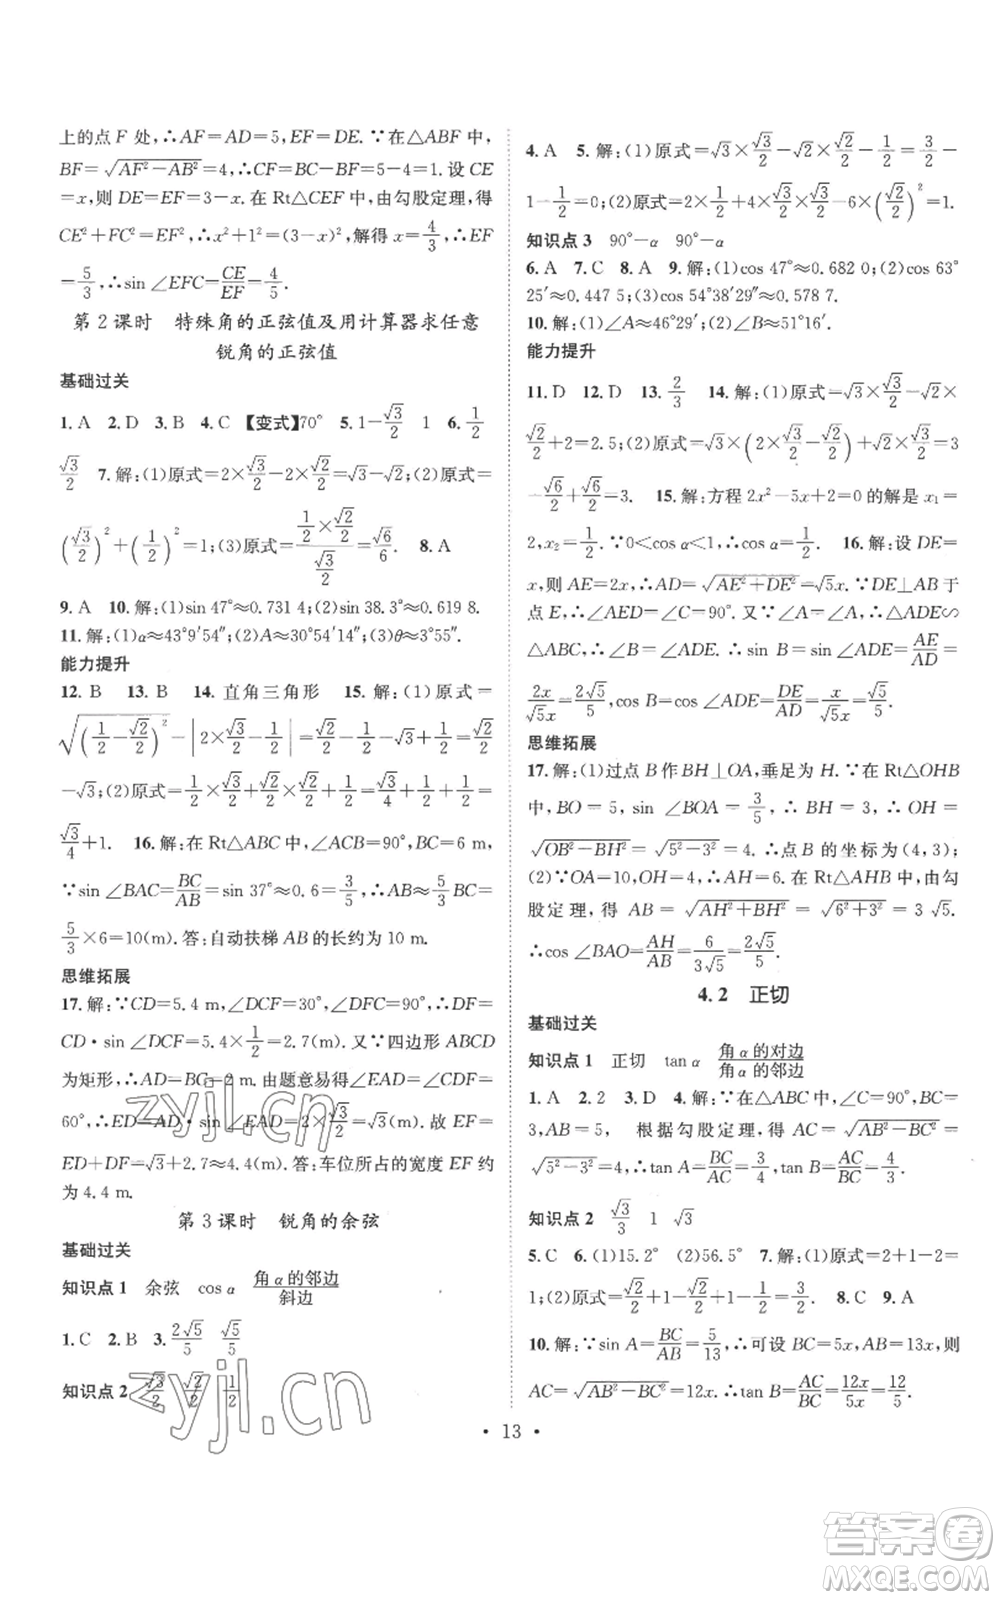 上的点 F 处,∴AF=AD=5,EF=DE.∵在△ABF 中,
BF=√(AF²-AB²)=4,∴CF=BC-BF=5-4=1.设 CE
=x,则 DE=EF=3-x.在 Rt△CEF 中,由勾股定理,得
CE²+FC²=EF²,∴x²+1²=(3-x)²,解得 x=4/3,∴EF
=5/3,∴sin∠EFC=CE/EF=4/5.
第 2 课时 特殊角的正弦值及用计算器求任意
锐角的正弦值
基础过关
1.A 2.D 3.B 4.C 【变式】70° 5.1-√3/2 1 6.1/2
√3/2 7.解:(1)原式=2×√3/2-2×√2/2=√3-√2;(2)原式
=(√3/2)²+(1/2)²=1;(3)原式=(1/2×√2/2)/(√3/2)=√6/6. 8.A
9.A 10.解:(1)sin 47°≈0.731 4;(2)sin 38.3°≈0.619 8.
11.解:(1)α≈43°9′54″;(2)A≈30°54′14″;(3)θ≈3°55″.
能力提升
12.B 13.B 14.直角三角形 15.解:(1)原式=
√((1/2-√2/2)²)-|2×√3/2-1/2|=√2/2-1/2-√3+1/2=√2/2
-√3;(2)原式=1/2+√2/2×√2/2+√3/2×1/2=1/2+1/2+
√3/4+1. 16.解:在 Rt△ABC 中,∠ACB=90°,BC=6 m,
∵sin∠BAC=BC/AB=sin 37°≈0.6=3/5,∴AB≈5/3BC=
5/3×6=10(m).答:自动扶梯 AB 的长约为 10 m.
思维拓展
17.解:∵CD=5.4 m,∠DCF=30°,∠DFC=90°,∴DF=
CD·sin∠DCF=5.4×1/2=2.7(m).又∵四边形 ABCD
为矩形,∴AD=BC=2 m.由题意易得∠EAD=∠DCF=
60°,∴ED=AD·sin∠EAD=2×√3/2=√3(m).∴EF=
ED+DF=√3+2.7≈4.4(m).答:车位所占的宽度 EF 约
为 4.4 m.
第 3 课时 锐角的余弦
基础过关
知识点 1 余弦 cos α 角α的邻边/斜边
1.C 2.B 3.2√5/5 √5/5
知识点 2 √3/2 √2/2 1/2
4.A 5.解:(1)原式=√3×√3/2-√2×√2/2-1/2=3/2-
1-1/2=0;(2)原式=2×1/2+4×√3/2×√3/2-6×(√2/2)²=1.
知识点 3 90°-α 90°-α
6.A 7.C 8.A 9.解:(1)cos 47°≈0.682 0;(2)cos 63°
25′≈0.447 5;(3)cos 54°38′29″≈0.578 7.
10.解:(1)∠A≈46°29′;(2)∠B≈51°16′.
能力提升
11.D 12.D 13.2/3 14.解:(1)原式=√3×√3/2-√2×
√2/2+2=2.5;(2)原式=√3×(2×√3/2-√2/2)+√6/2=3
-√6/2+√6/2=3. 15.解:方程 2x²-5x+2=0 的解是 x₁
=2,x₂=1/2.∵0<cos α<1,∴cos α=1/2. 16.解:设 DE=
x,则 AE=2x,∴AD=√(AE²+DE²)=√5x.∵DE⊥AB 于
点 E,∴∠AED=∠C=90°.又∵∠A=∠A,∴△ADE∽
△ABC,∴∠B=∠ADE.∴sin B=sin∠ADE=AE/AD=
2x/√5x=2√5/5,cos B=cos∠ADE=DE/AD=x/√5x=√5/5.
思维拓展
17.解:(1)过点 B 作 BH⊥OA,垂足为 H.∵在 Rt△OHB
中,BO=5,sin∠BOA=3/5,∴BH=3.∴OH=
√(OB²-BH²)=√(5²-3²)=4.∴点 B 的坐标为(4,3);
(2)∵OA=10,OH=4,∴AH=6.在 Rt△AHB 中,由勾
股定理,得 AB=√(AH²+BH²)=√(6²+3²)=3√5.
∴cos∠BAO=AH/AB=6/3√5=2√5/5.
4.2 正切
基础过关
知识点 1 正切 tan α 角α的对边/角α的邻边
1.A 2.2 3.D 4.解:∵在△ABC 中,∠C=90°,BC=
3,AB=5, 根据勾股定理,得 AC=√(AB²-BC²)=
√(5²-3²)=4,∴tan A=BC/AC=3/4,tan B=AC/BC=4/3.
知识点 2 √3/3 1 √3
5.C 6.(1)15.2° (2)56.5° 7.解:(1)原式=2+1-2=
1;(2)原式=√2/2+1-√2/2+1/2=1+1/2=3/2. 8.C 9.A
10.解:∵sin A=BC/AB=5/13,∴可设 BC=5x,AB=13x,则
AC=√(AB²-BC²)=12x.∴tan B=AC/BC=12x/5x=12/5.
• 13 •
zyjl.cn
zyjl.cn
答案卷
MXQE.COM